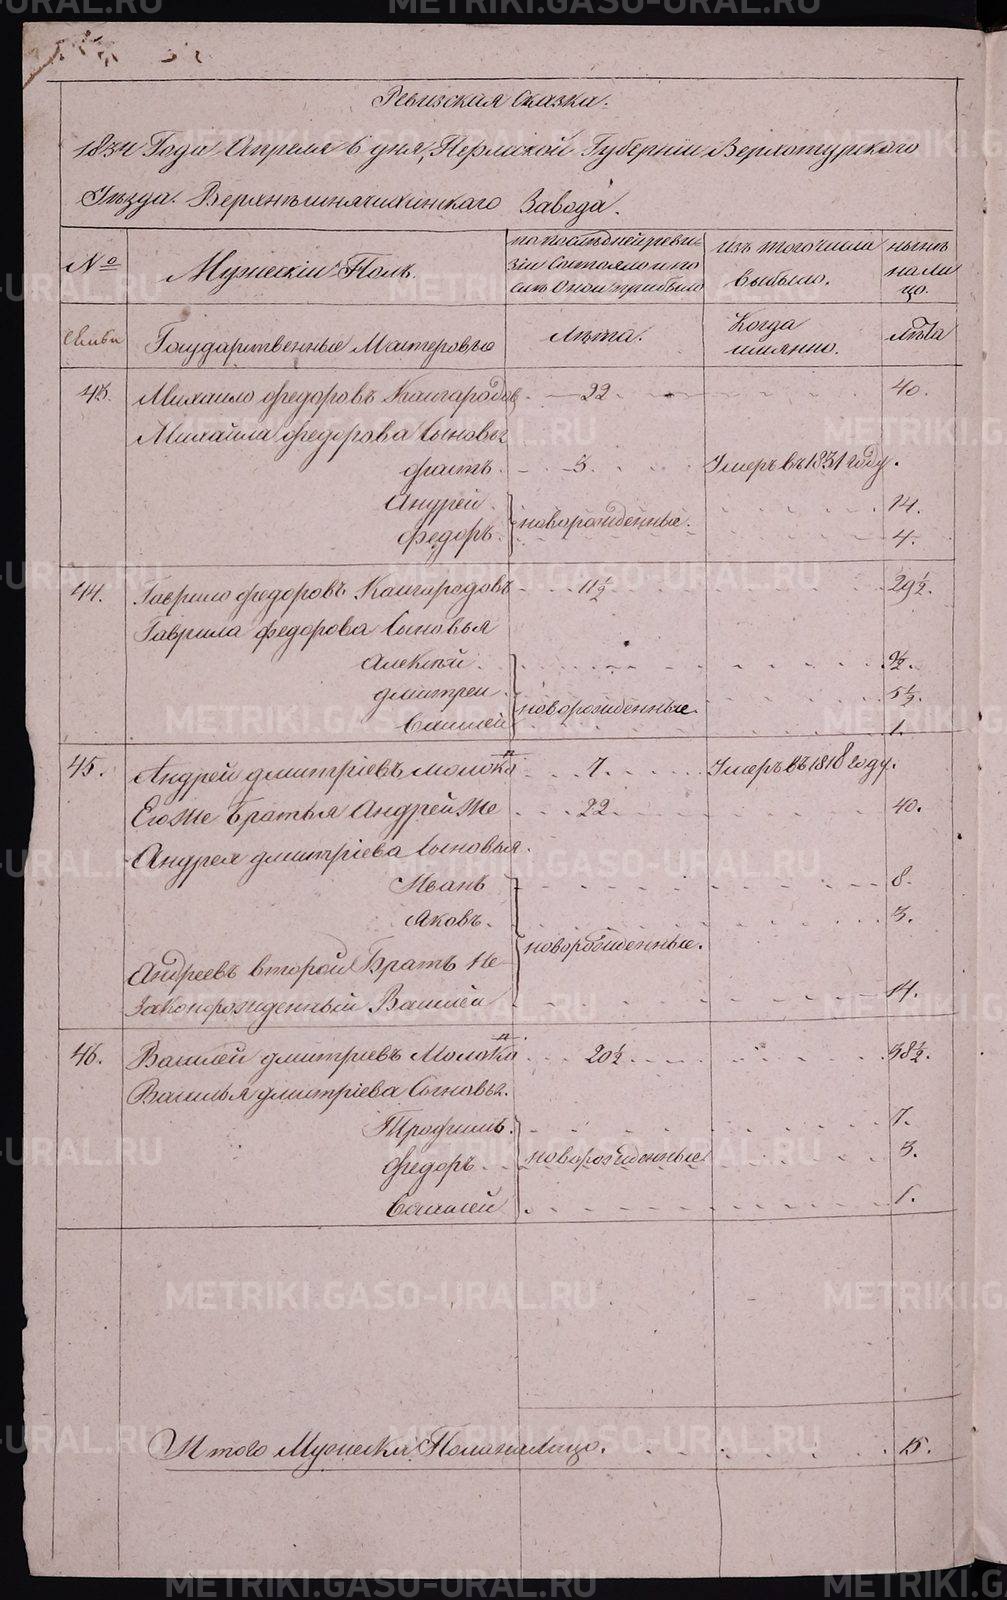 Ревизская Сказка.
1834 Года Апреля 6 дня, Пермской Губернiи Верхотурского
Уѣзда. Верхнѣсинячихинскаго Завода.
№
Мужескiй Полъ.
по послѣдней реви-
зiи Состояло и по
слѣ Оной прибыло
изъ того числа
выбыло.
нынѣ
на ли
цо.
Семьи
Государственные Мастеровые
Лѣта.
Когда
имянно.
Лѣта
43. Михаило Федоровъ Кайгародов 22 40.
Михайла Федорова Сыновья
5. Умеръ въ 1831 году.
Андрей 14.
Федоръ. новорожденные. 4.
44. Гаврило Федоровъ Кайгародовъ 11½ 29½.
Гаврила Федорова Сыновья
Алексѣй. 9½.
Дмитрей 5½.
Василей новорожденные. 1.
45. Андрей Дмитрiевъ 7 Умеръ въ 1818 году.
Его же Братья Андрей же 22. 40.
Андрея Дмитрiева Сыновья.
Иванъ 8.
Яковъ. 3.
новорожденные.
Андреевъ второй Братъ Не-
законорожденный Василей 14.
46. Василей Дмитрiевъ 20½ 38½.
Василья Дмитрiева Сыновья.
Трофимъ. 7.
Федоръ новорожденные 3.
Василей 1.
Итого Мужеска Пола на Лицо. 15.
METRIKI.GASO-URAL.RU